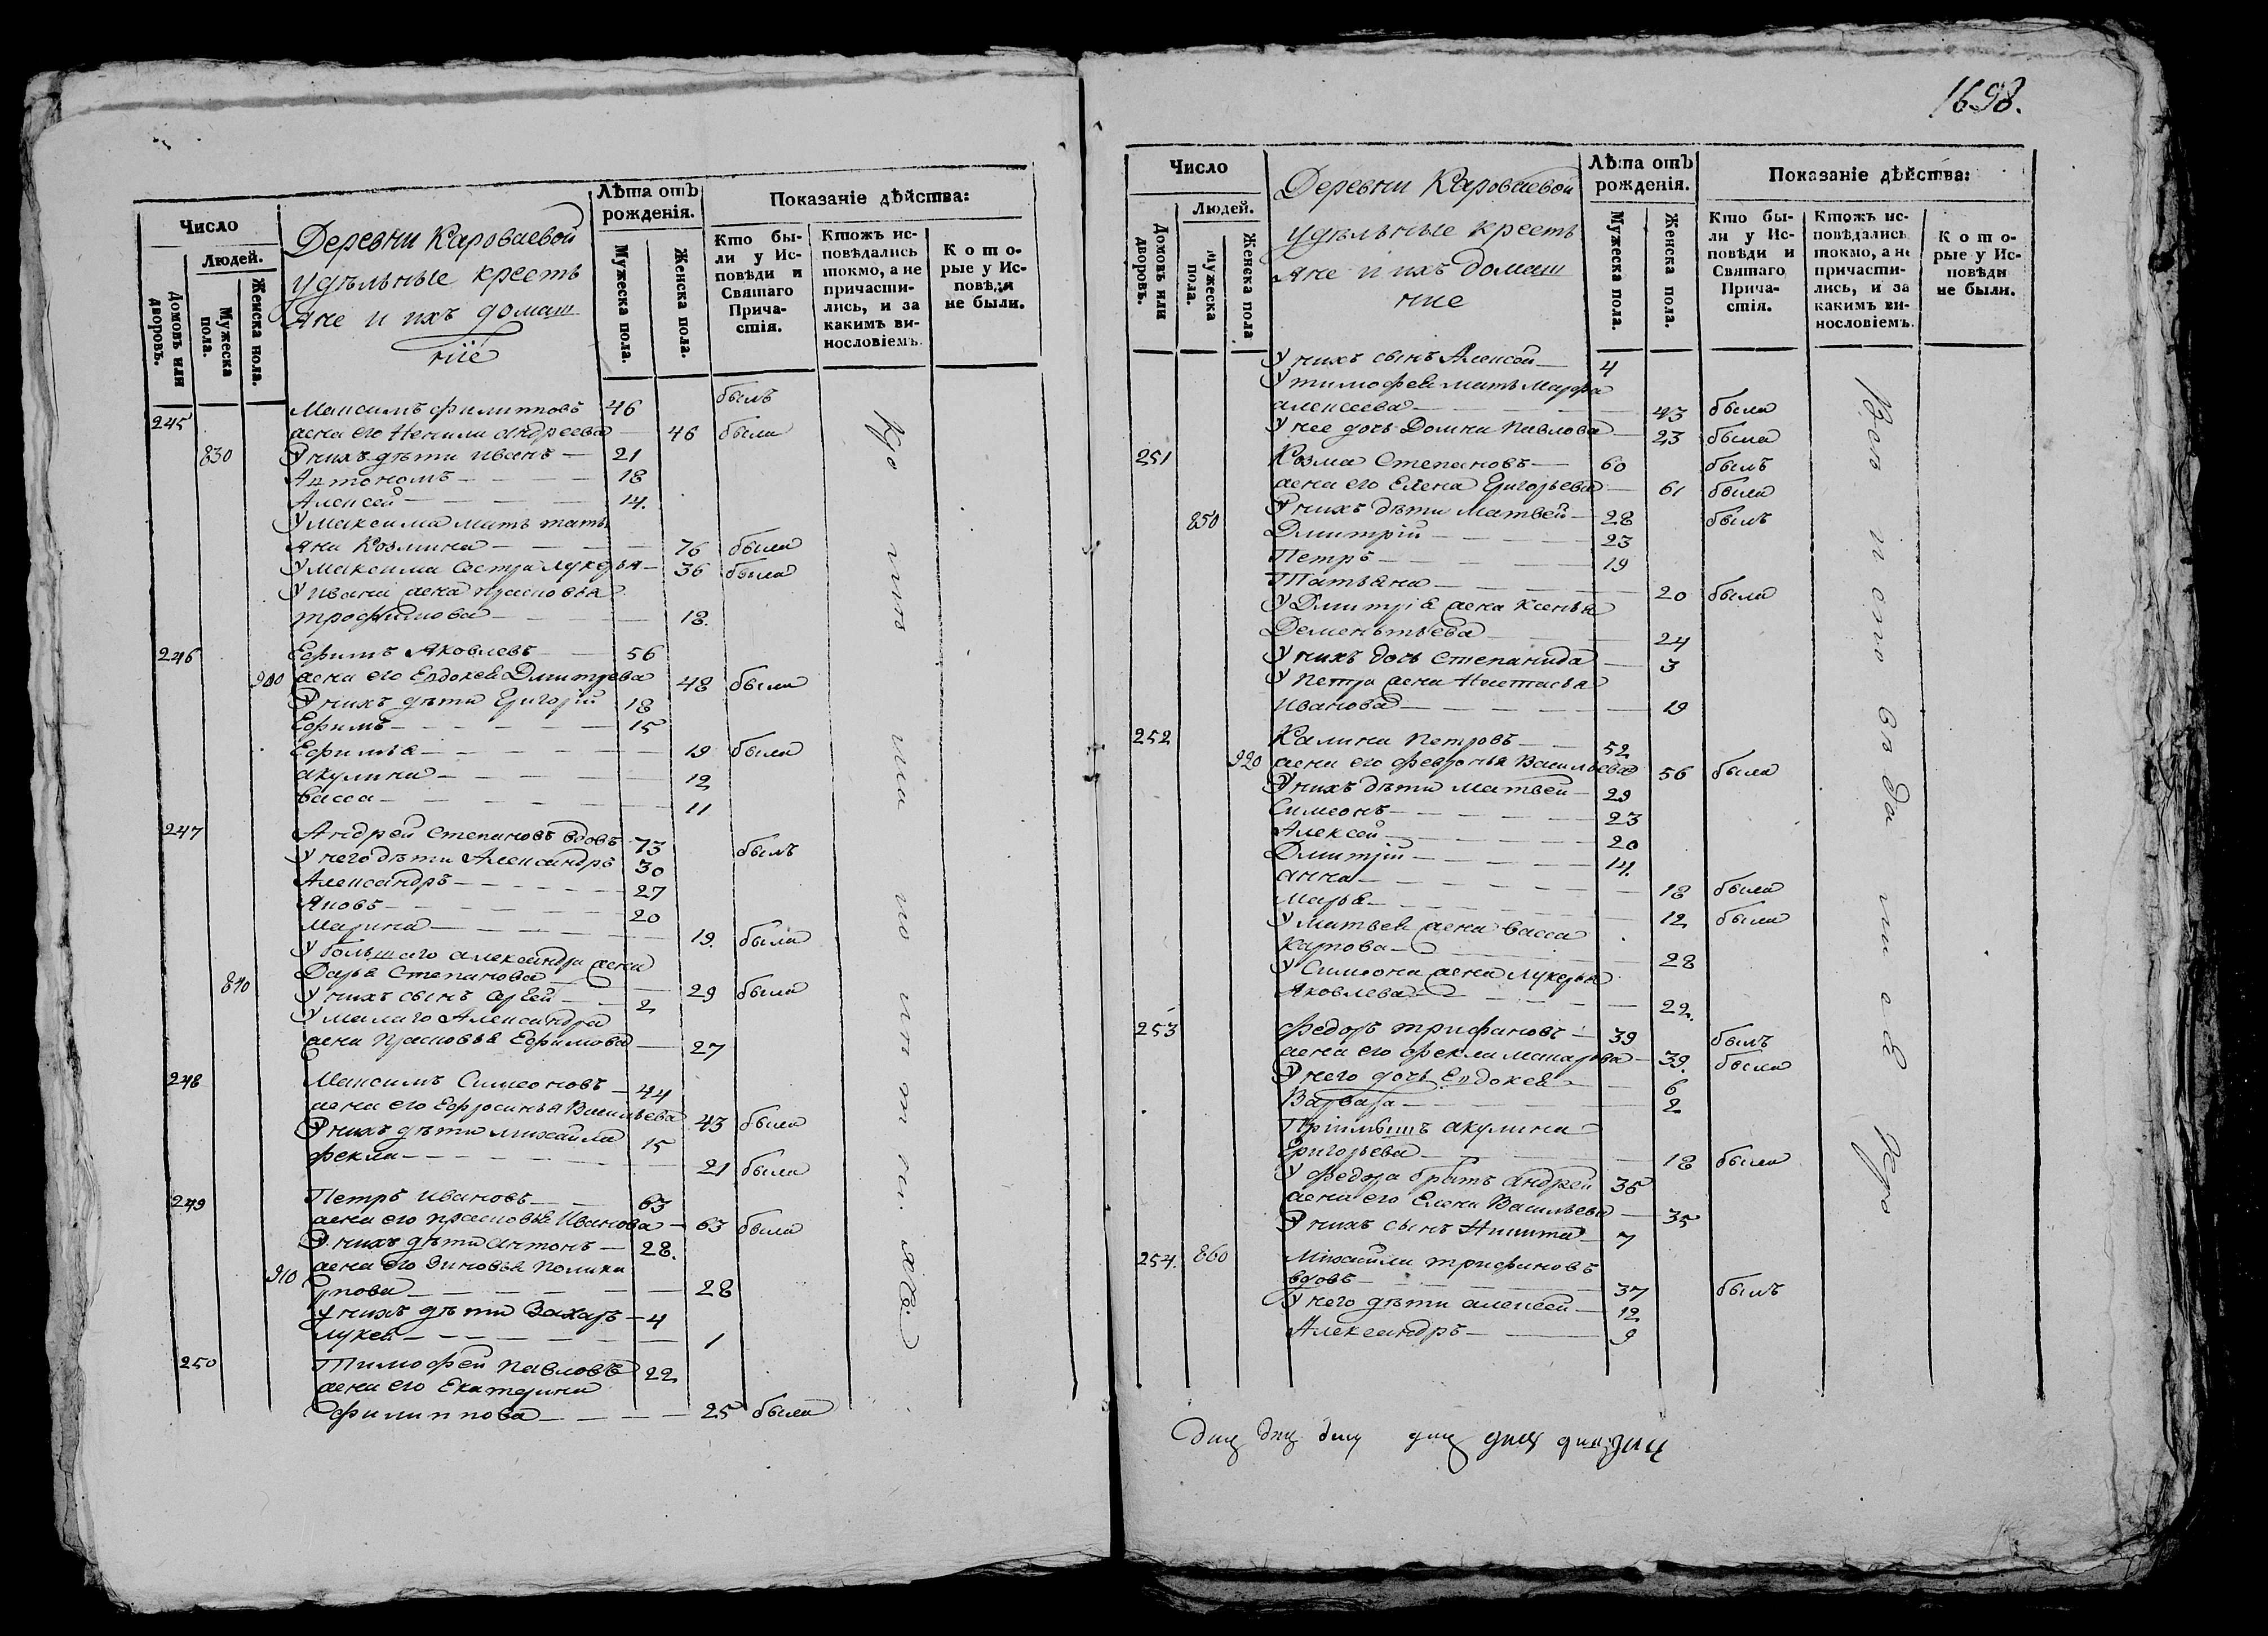 Число
Людей.
Домовъ или дворовъ.
Мужеска пола.
Женска пола.
Деревни Кароваевой
удѣльные кресть
яне и ихъ домаш
ніе
Лѣта отъ рожденія.
Мужеска пола.
Женска пола.
Показаніе дѣйства:
Кто бы-
ли у Ис-
повѣди и
Святаго
Прича-
стія.
Ктожъ ис-
повѣдались
токмо, а не
причасти-
лись, и за
какимъ ви-
нословіемъ.
Кото-
рые у Ис-
повѣди
не были.
245 Максимъ филиповъ 46 былъ
жена его Ненила андреева 46 была
830 У нихъ дѣти иванъ 21
Антономъ 18
Алексей 14.
У максима мать тать
яна Козмина 76 была
У максима сестра лукерья 36 была
У ивана жена прасковья
трофимова 18.
246 Ефимъ Яковлевъ 56
900 жена его Евдокея Дмитрева 48 была
У нихъ дѣти Григорій 18
Ефимъ 15
Ефимья 19 была
акулина 12
васса 11
247 Андрей Степановъ вдовъ 73 былъ
У него дѣти Александръ 30
Александръ 27
Яковъ 20
марина 19. была
У большаго александра жена
840 Дарья Степанова 29 была
У нихъ сынъ Сергей 2
У малаго Александра
жена Прасковья Ефимова 27
248 Максимъ Симеоновъ 44
жена его Ефросинья Васильева 43 была
У нихъ дѣти михайла 15
фекла 21 была
249 Петръ ивановъ 63
жена его прасковья Иванова 63 была
У нихъ дѣти антонъ 28.
жена его Зиновья полика
910 рпова 28
у нихъ дѣти Захаръ 4
лукея 1
250 Тимофей павловъ 22
жена его Екатерина
филиппова 25 была
1698.
Число
Людей.
Домовъ или дворовъ.
Мужеска пола.
Женска пола
Деревни Кароваевой
удѣльные кресть
яне и ихъ домаш
ние
Лѣта отъ рожденія.
Мужеска пола.
Женска пола.
Показаніе дѣйства:
Кто бы-
ли у Ис-
повѣди и
Святаго
Прича-
стія.
Ктожъ ис-
повѣдались
токмо, а не
причасти-
лись, и за
какимъ ви-
нословіемъ.
Кото-
рые у Ис-
повѣди
не были.
У нихъ сынъ Алексей 4
У тимофея мать марфа
алексеева 43 была
У нее дочь Домна павлова 23 была
251 Козма Степановъ 60 былъ
жена его Елена Григорьева 61 была
850 У нихъ дѣти матвей 28 былъ
Дмитрій 23
Петръ 19
Татьяна 20 была
У Дмитрія жена ксенья
Дементьева 24
У нихъ дочь степанида 3
У петра жена настасья
иванова 19
252 Калина петровъ 52
920 жена его февронья Васильева 56 была
У нихъ дѣти матвей 29
Симеонъ 23
Алексей 20
Дмитрій 14.
анна 18 была
марья 12 была
У матвея жена васса
карпова 28
У Симеона жена лукерья
Яковлева 22.
253 федоръ трифановъ 39 былъ
жена его фекла макарова 39. была
У него дочь Евдокея 6
Варвара 2
Пріимышъ акулина
Григорьева 18 была
У федора братъ андрей 35
жена его Елена Васильева 35
У нихъ сынъ Никита 7
254. 860 михайла трифановъ
вдовъ 37 былъ
У него дѣти алексей 12
Александръ 9